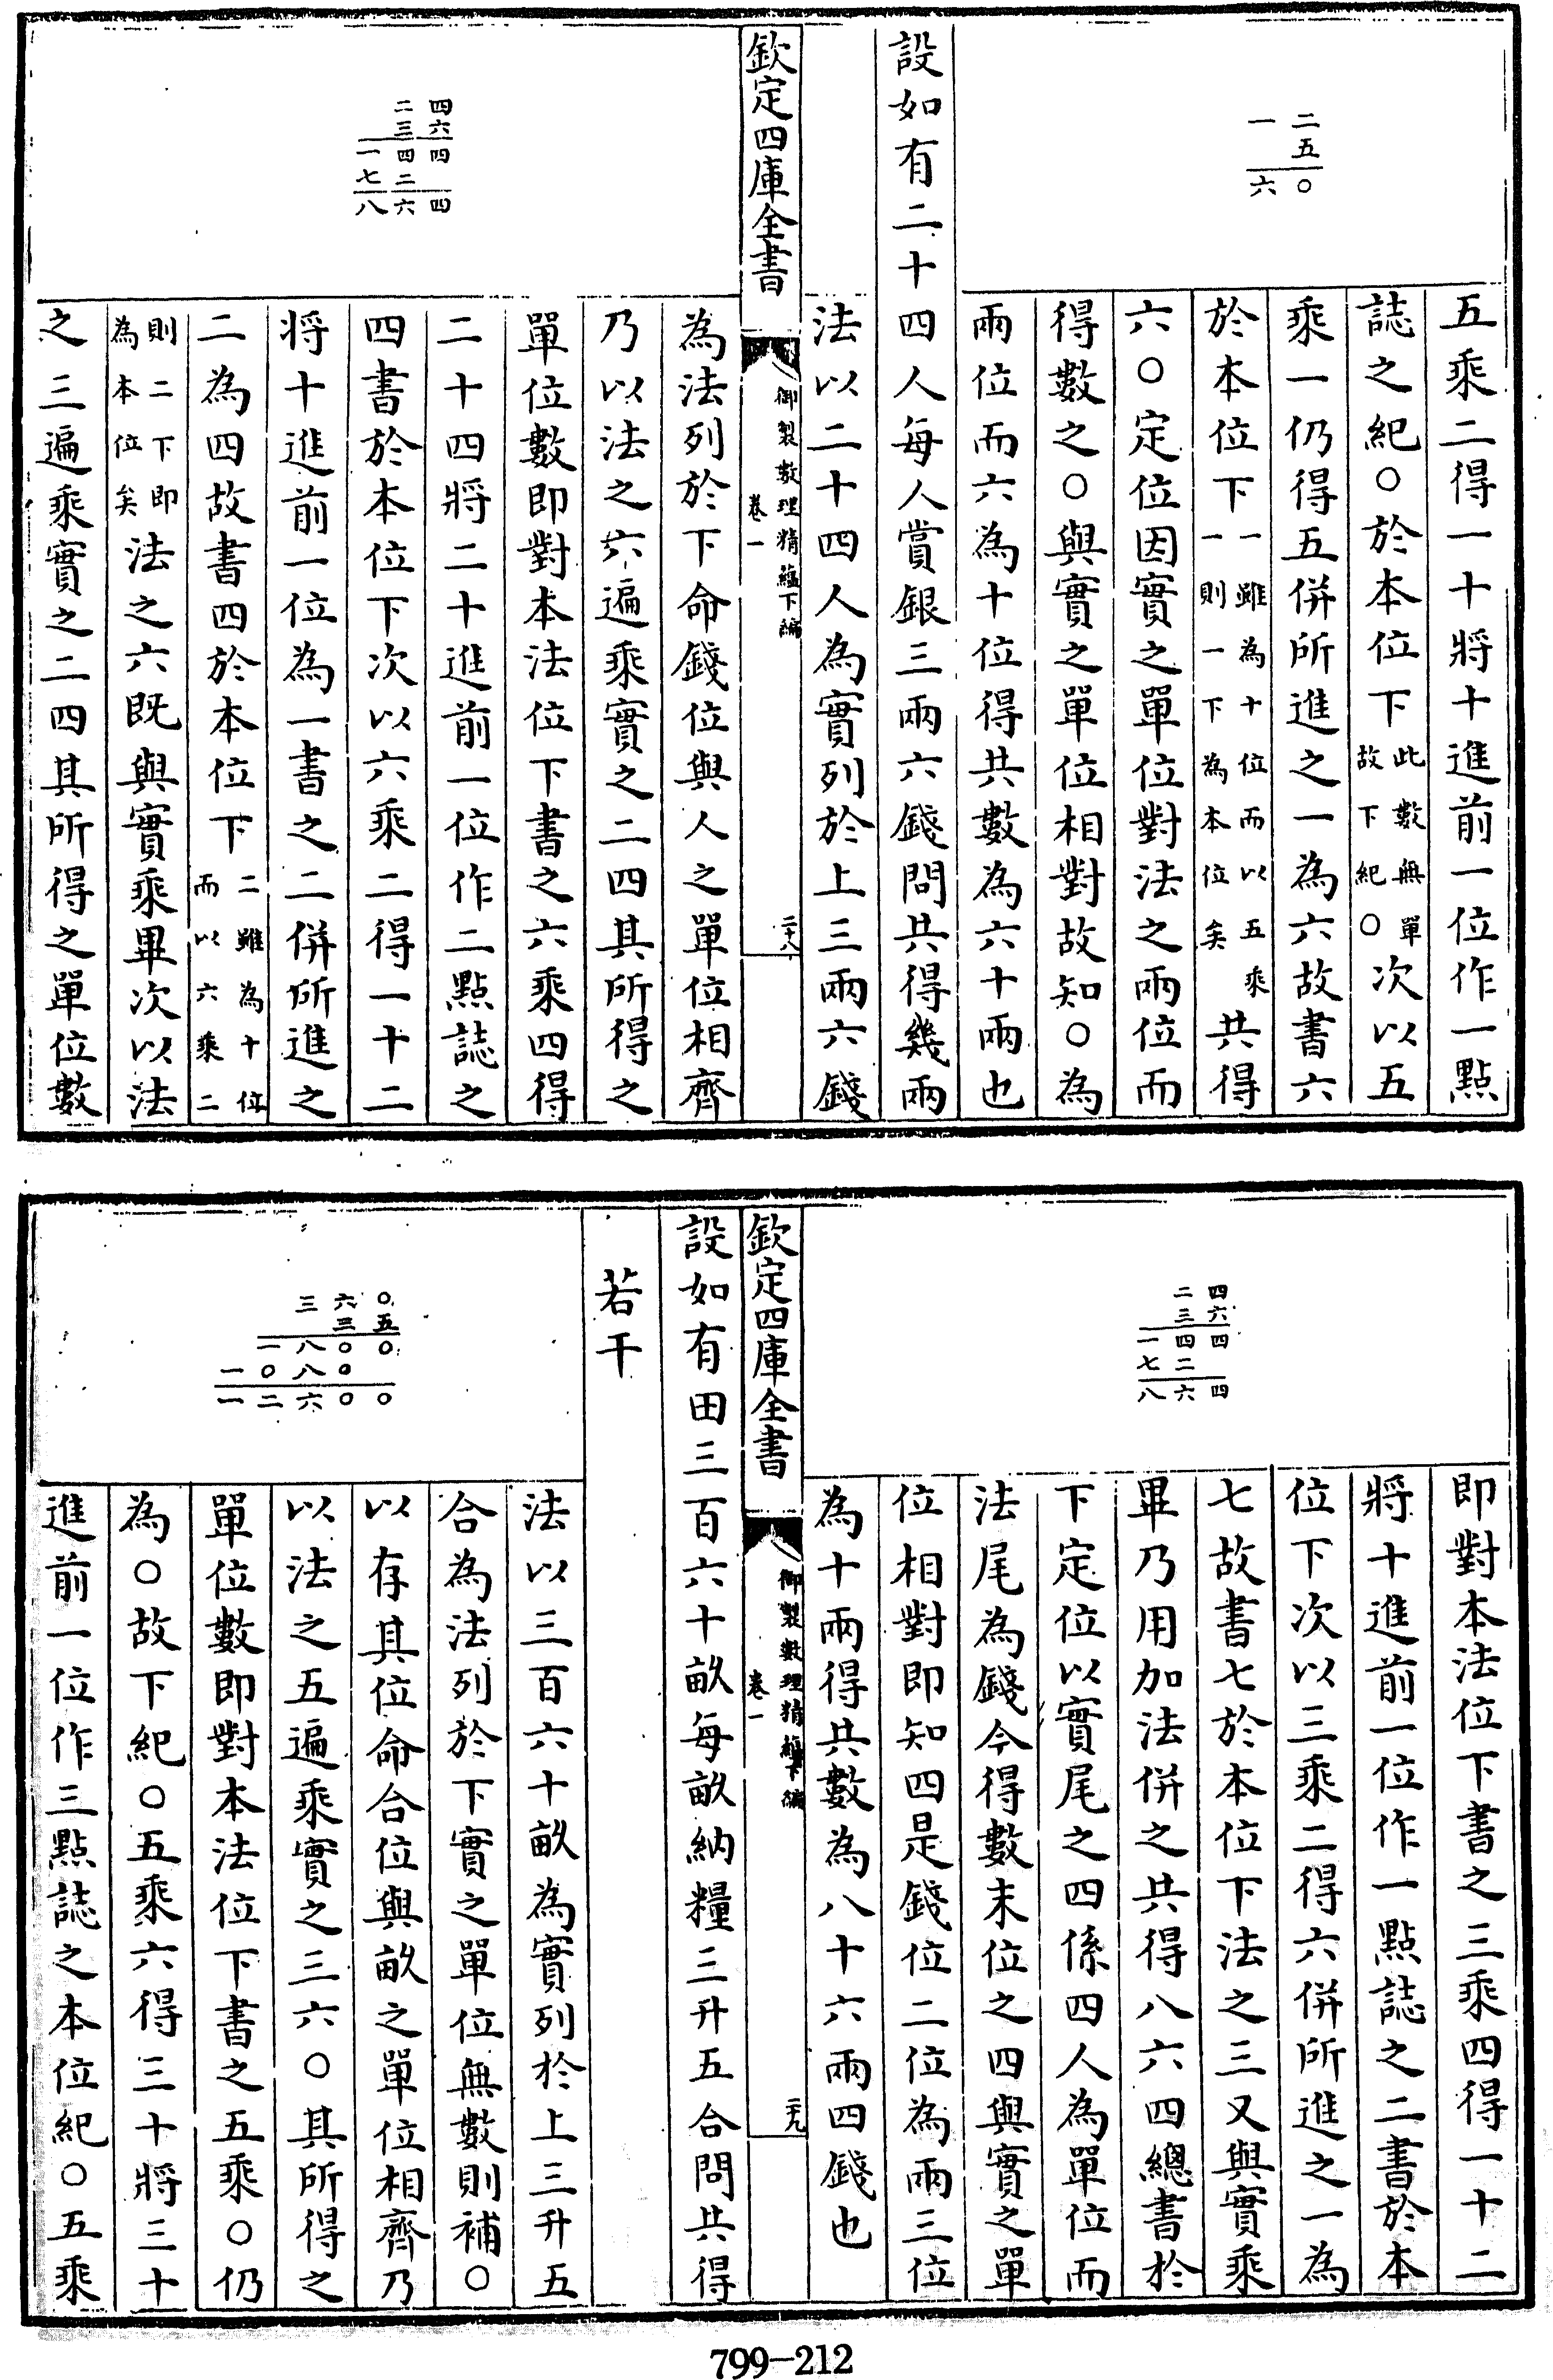 一二
五
六〇
五乘二得一十將十進前一位作一點
誌之紀〇於本位下此數無單故下紀〇次以五
乘一仍得五併所進之一為六故書六
於本位下一雖為十位而以五乘一則一下為本位矣共得
六〇定位因實之單位對法之兩位而
得數之〇與實之單位相對故知〇為
兩位而六為十位得共數為六十兩也
設如有二十四人每人賞銀三兩六錢問共得幾兩
法以二十四人為實列於上三兩六錢
欽定四庫全書
御製數理精蘊下編
卷一
二十八
二四
三六
一四四
七二
八六四
為法列於下命錢位與人之單位相齊
乃以法之六遍乘實之二四其所得之
單位數即對本法位下書之六乘四得
二十四將二十進前一位作二點誌之
四書於本位下次以六乘二得一十二
將十進前一位為一書之二併所進之
二為四故書四於本位下二雖為十位而以六乘二
則二下即為本位矣法之六既與實乘畢次以法
之三遍乘實之二四其所得之單位數
二四
三六
一四四
七二
八六四
即對本法位下書之三乘四得一十二
將十進前一位作一點誌之二書於本
位下次以三乘二得六併所進之一為
七故書七於本位下法之三又與實乘
畢乃用加法併之共得八六四總書於
下定位以實尾之四係四人為單位而
法尾為錢今得數末位之四與實之單
位相對即知四是錢位二位為兩三位
為十兩得共數為八十六兩四錢也
欽定四庫全書
御製數理精蘊下編
卷一
二十九
設如有田三百六十畝每畝納糧三升五合問共得
若干
三六〇
三五
一八〇〇
一〇八〇
一二六〇〇
法以三百六十畝為實列於上三升五
合為法列於下實之單位無數則補〇
以存其位命合位與畝之單位相齊乃
以法之五遍乘實之三六〇其所得之
單位數即對本法位下書之五乘〇仍
為〇故下紀〇五乘六得三十將三十
進前一位作三點誌之本位紀〇五乘
799-212